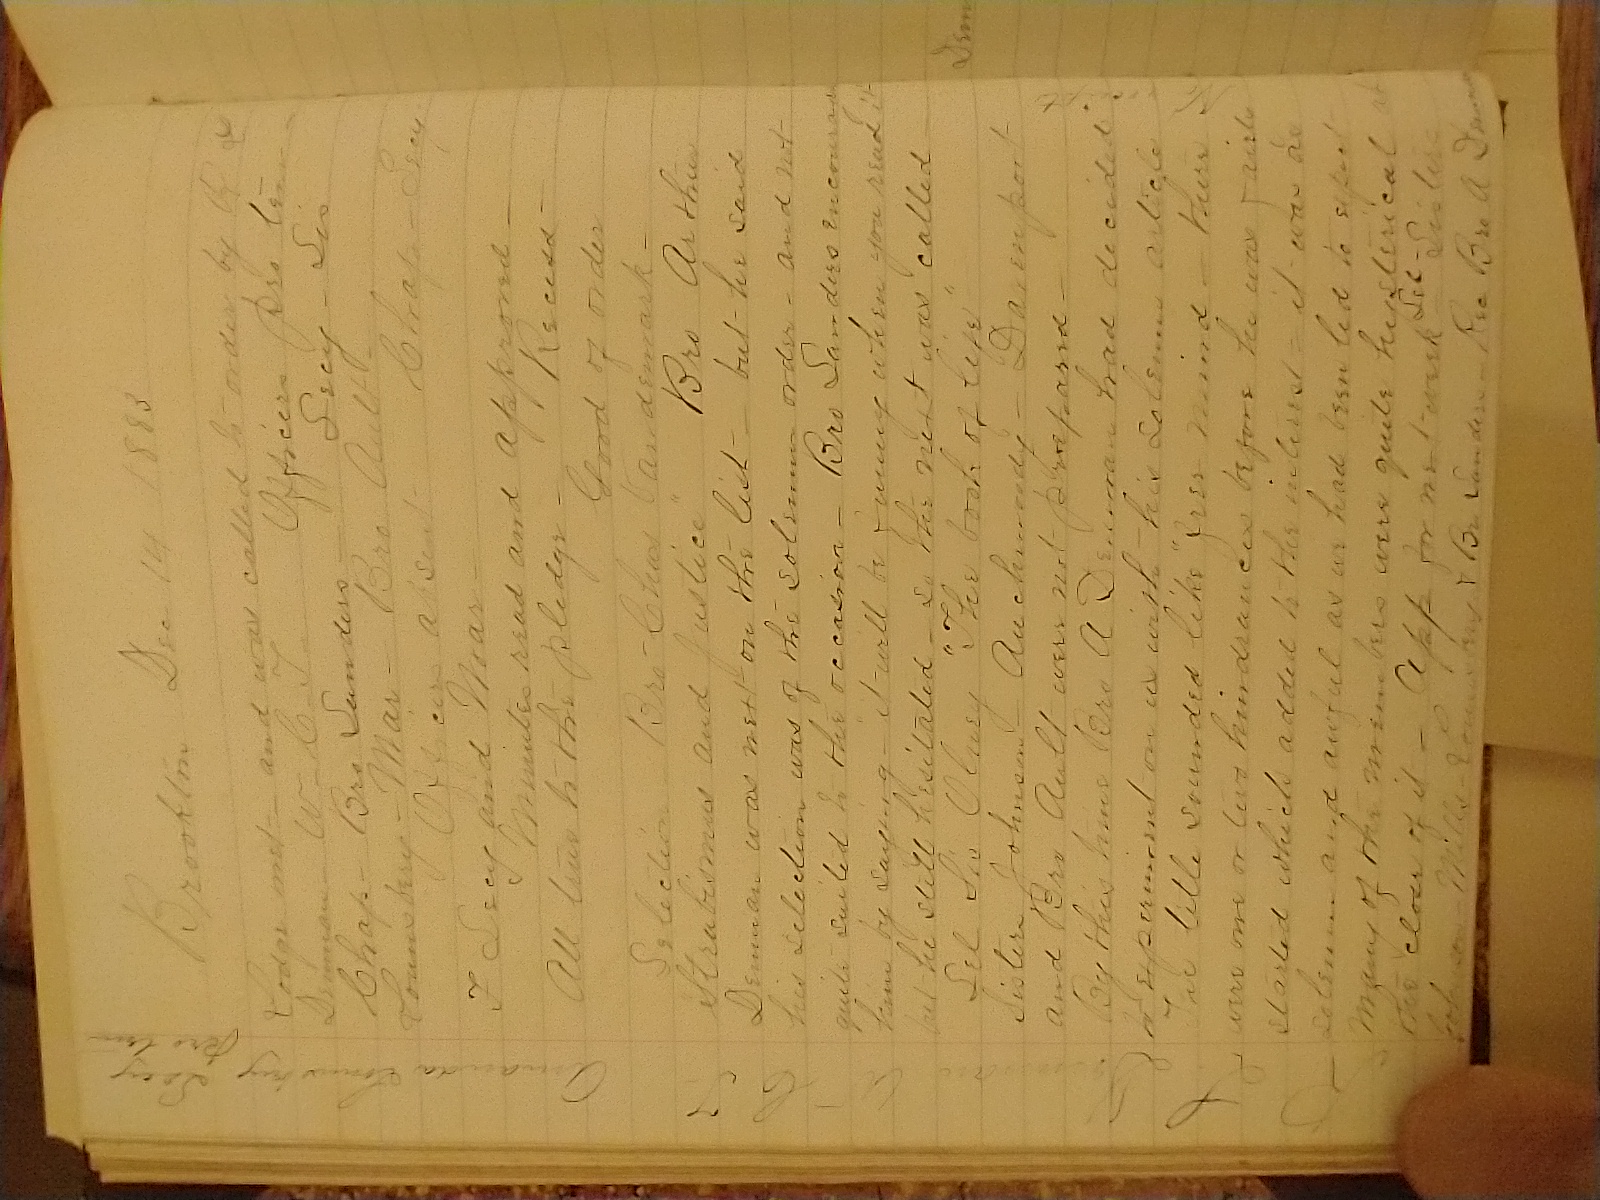 Brookton Dec 14 1883
Lodge met - and was called to order by R L
Denman - W - C. T. Officers pro tem -
Chap - Bro Sanders - Secy - Sis
Lounsbery - Mar - Bro Ault -
Officers absent Chap - Secy
F Secy and Mar -
Minutes read and approved -
All true to the pledge - Recess -
Good of order
Selection - Bro Chas Vandemark -
Strabismus and Justice" Bro Arthur
Denman was next on the list - but he said
his selection was of the solemn order - and not
quite suited to the occasion - Bro Sanders encourag
him by saying - it will be funny when you read it
but he still hesitated - so the next was called
Sel Sis Olney "The book of life"
Sisters Johnson - Auchmoody - Davenport
and Bro Ault were not prepared -
By this time Bro A Denman had decided
to experiment on us with his solemn article
The title sounded like "free mind - there
were one or two hindrances before he was fairly
started which added to the interest - it was as
solemn and awful as we had been led to expect
many of the members were quite hysterical at
the close of it - App for next week Sel - Sisters
Johnson - Mills - Lounsbery & Br Sanders - Rec Bro A Denman
R L Denman W C T
Amanda Lounsbery Secy
Pro tem
Dem